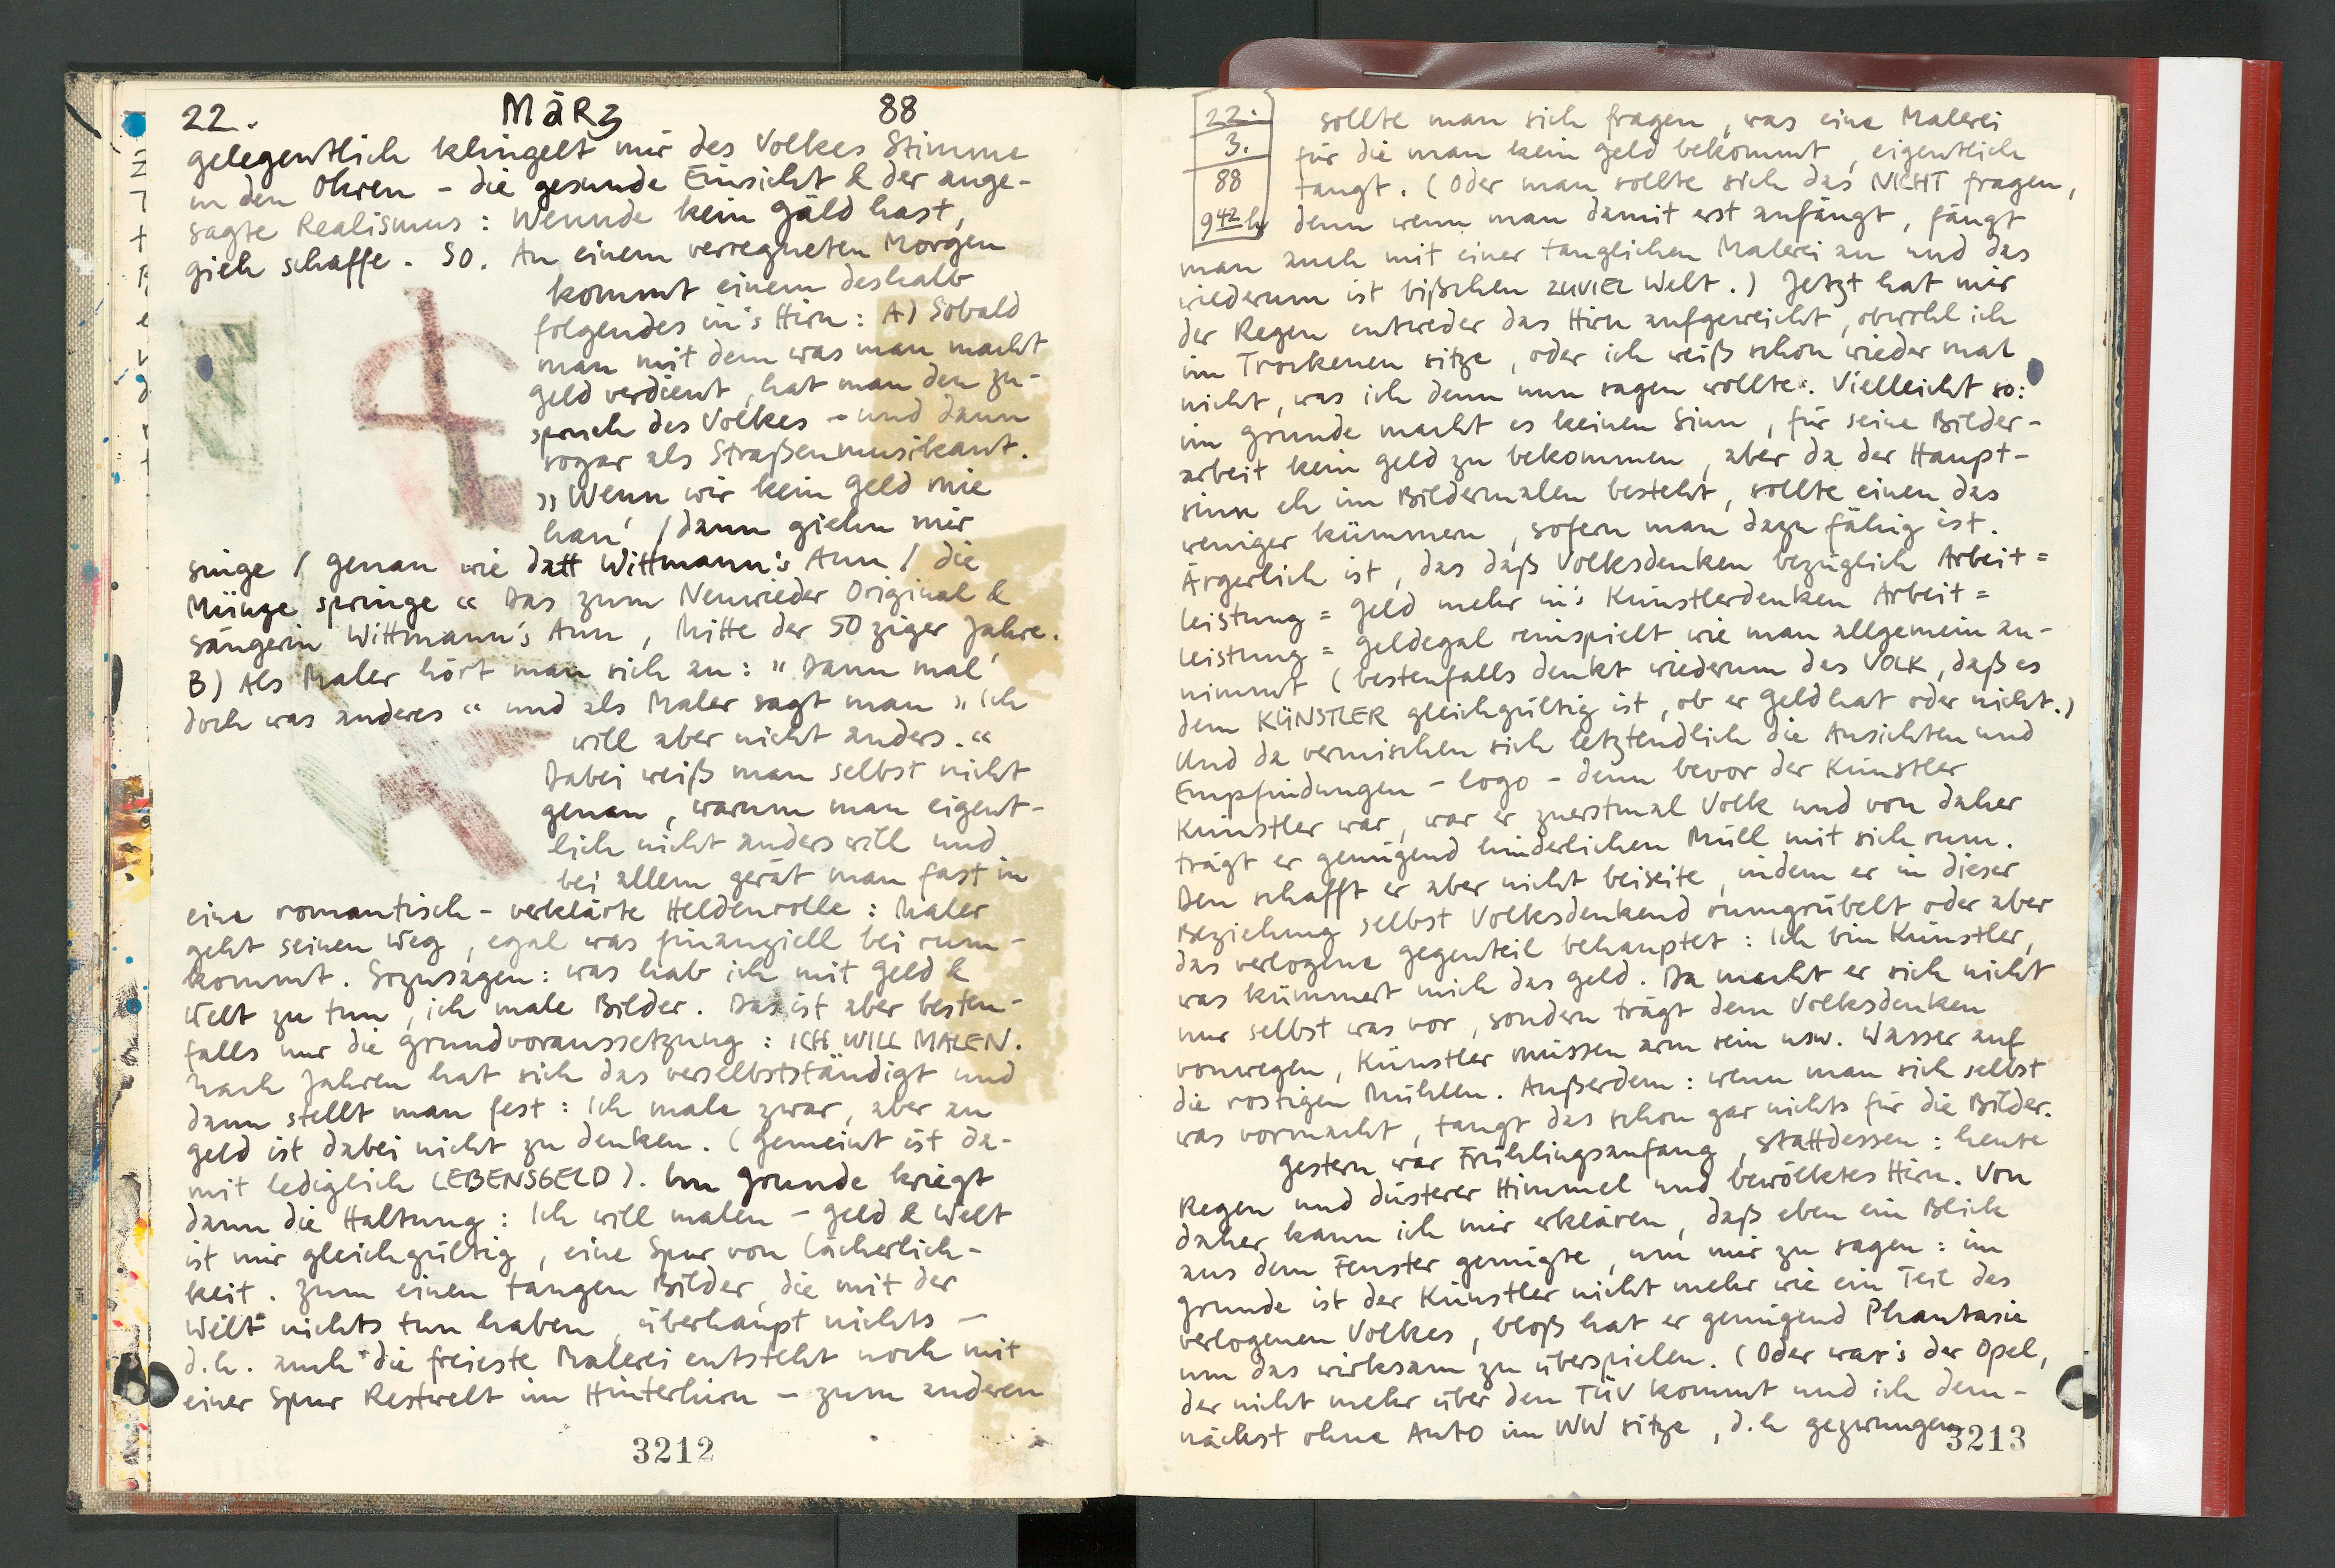 22. März 88
gelegentlich klingelt mir des Volkes Stimme
in den Ohren - die gesunde Einsicht & der ange-
sagte Realismus: Wennde kein Gäld hast,
gieh schaffe. So. An einem verregneten Morgen
kommt einem deshalb
folgendes in's Hirn: A) Sobald
man mit dem was man macht
Geld verdient, hat man den Zu-
spruch des Volkes - und dann
sogar als Straßenmusikant.
„Wenn wir kein Geld mie
han' / dann giehn mir
singe / genau wie datt Wittmann's Ann / die
Münze springe" Das zum Neuwieder Original &
Sängerin Wittmann's Ann, Mitte der 50ziger Jahre.
B) Als Maler hört man sich an: "Dann mal'
doch was anderes" und als Maler sagt man „Ich
will aber nicht anders."
Dabei weiß man selbst nicht
genau, warum man eigent-
lich nicht anders will und
bei allem gerät man fast in
eine romantisch-verklärte Heldenrolle: Maler
geht seinen Weg, egal was finanziell bei rum-
kommt. Sozusagen: was hab ich mit Geld &
Welt zu tun, ich male Bilder. Das ist aber besten-
falls nur die Grundvoraussetzung: ICH WILL MALEN.
Nach Jahren hat sich das verselbstständigt und
dann stellt man fest: Ich male zwar, aber an
Geld ist dabei nicht zu denken. (Gemeint ist da-
mit lediglich LEBENSGELD). Im Grunde kriegt
dann die Haltung: Ich will malen - Geld & Welt
ist mir gleichgültig, eine Spur von Lächerlich-
keit. Zum einen taugen Bilder, die mit der
Welt nichts tun haben, überhaupt nichts -
d.h. auch die freieste Malerei entsteht noch mit
einer Spur Restwelt im Hinterhirn - zum anderen
3212
22.
3.
88
942h
sollte man sich fragen, was eine Malerei
für die man kein Geld bekommt, eigentlich
taugt. (Oder man sollte sich das NICHT fragen,
denn wenn man damit erst anfängt, fängt
man auch mit einer tauglichen Malerei an und das
wiederum ist bißchen ZUVIEL Welt.) Jetzt hat mir
der Regen entweder das Hirn aufgeweicht, obwohl ich
im Trockenen sitze, oder ich weiß schon wieder mal
nicht, was ich denn nun sagen wollte. Vielleicht so:
im Grunde macht es keinen Sinn, für seine Bilder-
arbeit kein Geld zu bekommen, aber da der Haupt-
sinn eh im Bildermalen besteht, sollte einen das
weniger kümmern, sofern man dazu fähig ist.
Ärgerlich ist, das daß Volksdenken bezüglich Arbeit=
Leistung = Geld mehr in's Künstlerdenken Arbeit=
Leistung = Geldegal reinspielt wie man allgemein an-
nimmt (bestenfalls denkt wiederum das VOLK, daß es
dem KÜNSTLER gleichgültig ist, ob er Geld hat oder nicht.)
Und da vermischen sich letztendlich die Ansichten und
Empfindungen - logo - denn bevor der Künstler
Künstler war, war er zuerstmal Volk und von daher
trägt er genügend hinderlichen Müll mit sich rum.
Den schafft er aber nicht beiseite, indem er in dieser
Beziehung selbst Volksdenkend rumgrübelt oder aber
das verlogene Gegenteil behauptet: Ich bin Künstler,
was kümmert mich das Geld. Da macht er sich nicht
nur selbst was vor, sondern trägt dem Volksdenken
vonwegen, Künstler müssen arm sein usw. Wasser auf
die rostigen Mühlen. Außerdem: wenn man sich selbst
was vormacht, taugt das schon gar nichts für die Bilder.
Gestern war Frühlingsanfang, stattdessen: heute
Regen und düsterer Himmel und bewölktes Hirn. Von
daher kann ich mir erklären, daß eben ein Blick
aus dem Fenster genügte, um mir zu sagen: im
Grunde ist der Künstler nicht mehr wie ein Teil des
verlogenen Volkes, bloß hat er genügend Phantasie
um das wirksam zu überspielen. (Oder war's der Opel,
der nicht mehr über den TÜV kommt und ich dem-
nächst ohne Auto im WW sitze, d.h gezwungen
3213